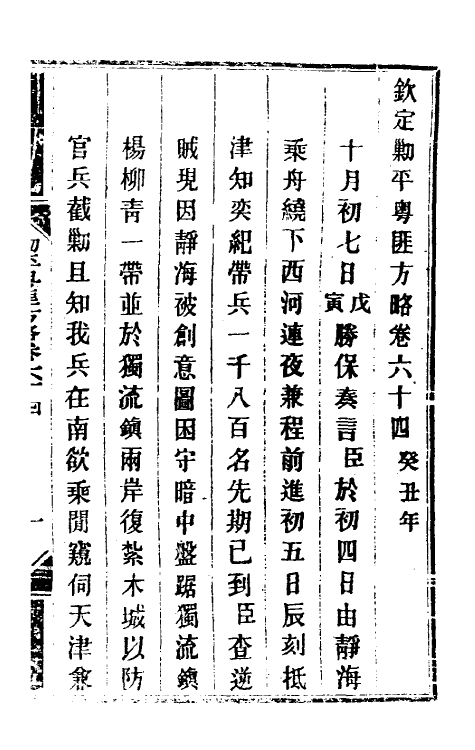 欽定勦平粵匪方略卷六十四 癸丑年
十月初七日戊寅勝保奏言臣於初四日由靜海
乘舟繞下西河連夜兼程前進初五日辰刻抵
津知奕紀帶兵一千八百名先期已到臣查逆
賊現因靜海被創意圖困守暗中盤踞獨流鎮
楊柳青一帶並於獨流鎮兩岸復紮木城以防
官兵截勦且知我兵在南欲乘閒窺伺天津兼